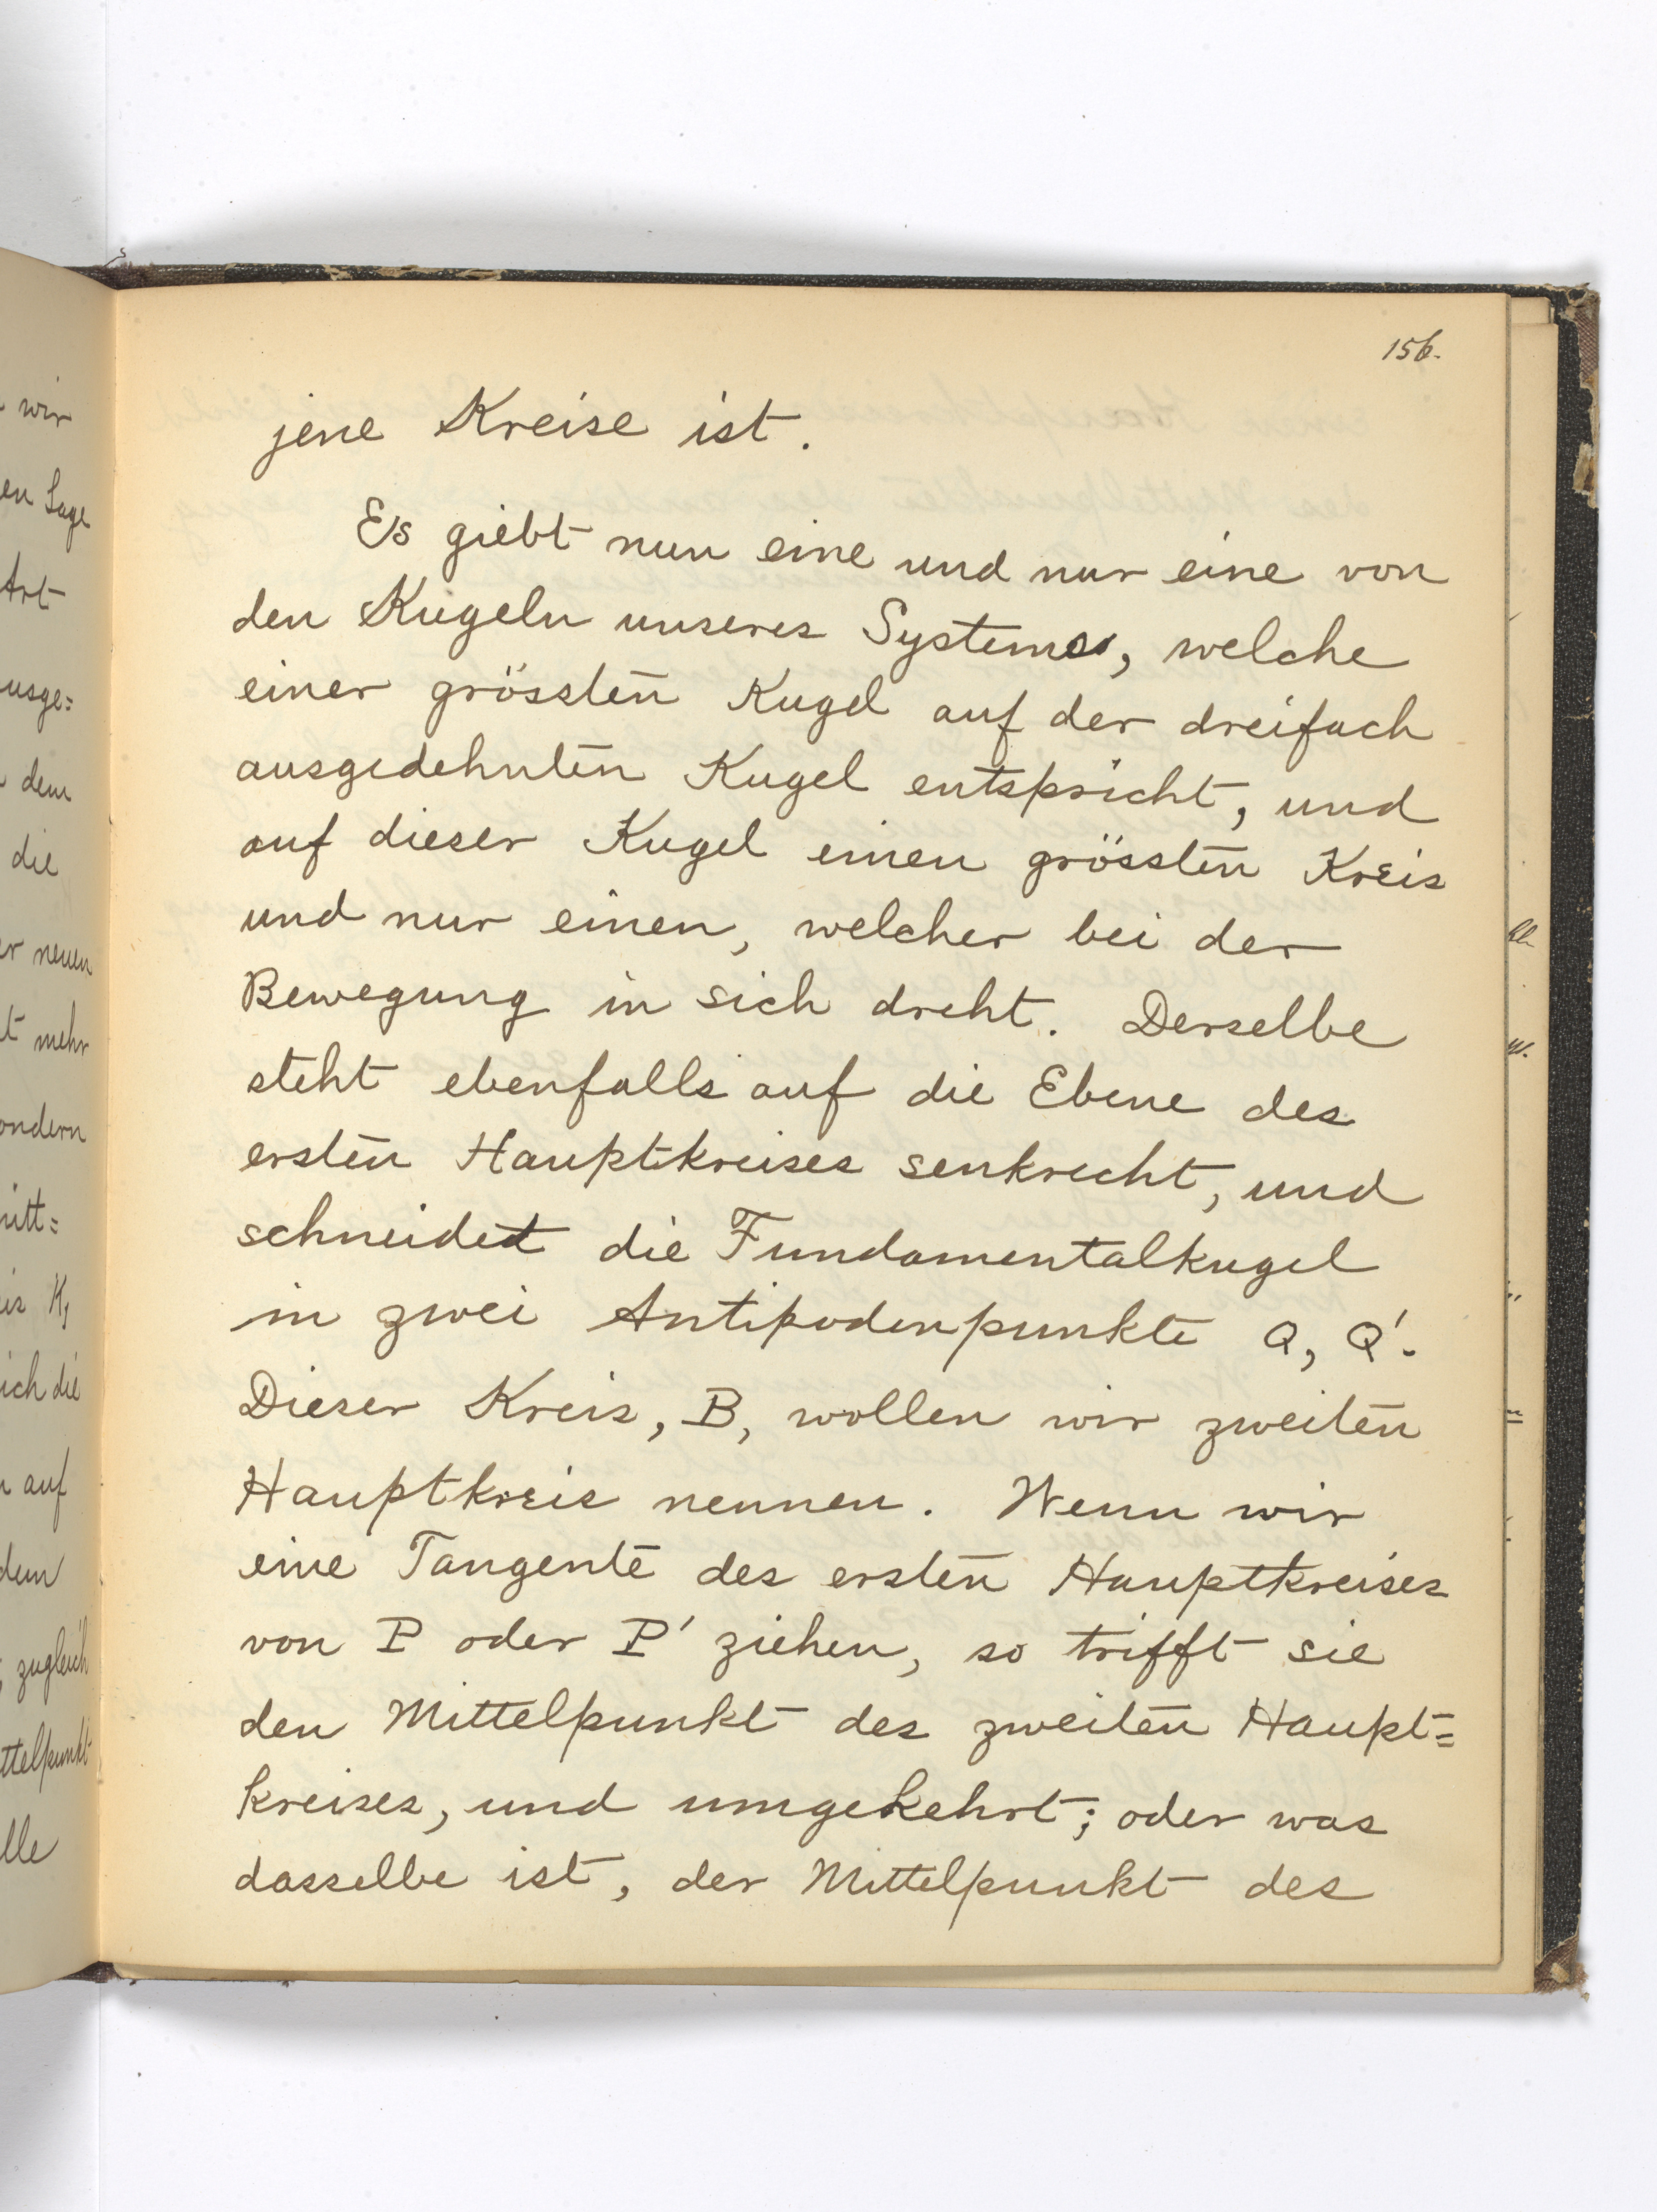 156.
jene Kreise ist.
Es giebt nun eine und nur eine von
den Kugeln unseres Systems, welche
einer grössten Kugel auf der dreifach
ausgedehnten Kugel entspricht, und
auf dieser Kugel einen grössten Kreis
und nur einen, welcher bei der
Bewegung in sich dreht. Derselbe
steht ebenfalls auf die Ebene des
ersten Hauptkreises senkrecht, und
schneidet die Fundamentalkugel
in zwei Antipodenpunkte Q, Q'.
Dieser Kreis, B, wollen wir zweiten
Hauptkreis nennen. Wenn wir
eine Tangente des ersten Hauptkreises
von P oder P' ziehen, so trifft sie
den Mittelpunkt des zweiten Haupt=
kreises, und umgekehrt; oder was
dasselbe ist, der Mittelpunkt des
wir
en Lage
Art
usge=
dem
die
er neuen
t mehr
ondern
itt=
is K,
ich die
auf
dem
zugleich
ttelpunkt
lle